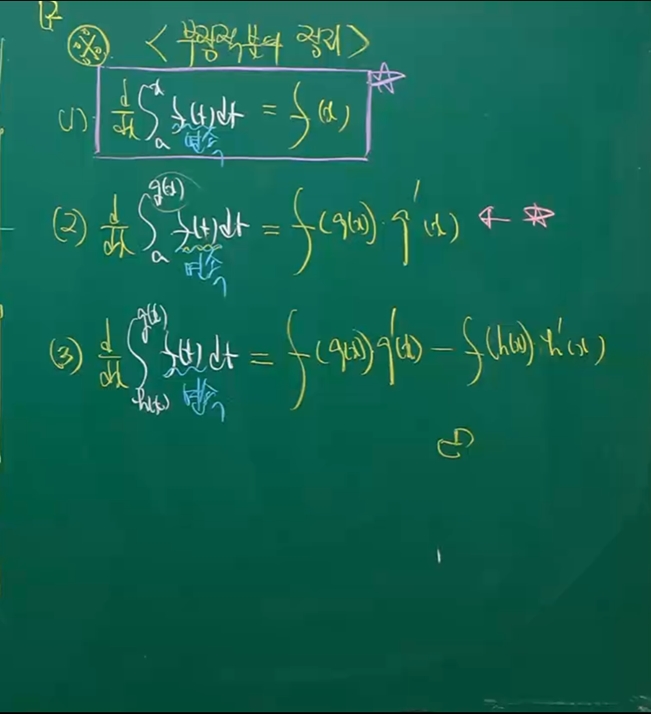 <부정적분의 정리>
(1) d/dx ∫_a^x f(t)dt = f(x)
(2) d/dx ∫_a^{g(x)} f(t)dt = f(g(x))·g'(x) ← ☆
(3) d/dx ∫_{h(x)}^{g(x)} f(t)dt = f(g(x))·g'(x) - f(h(x))·h'(x)